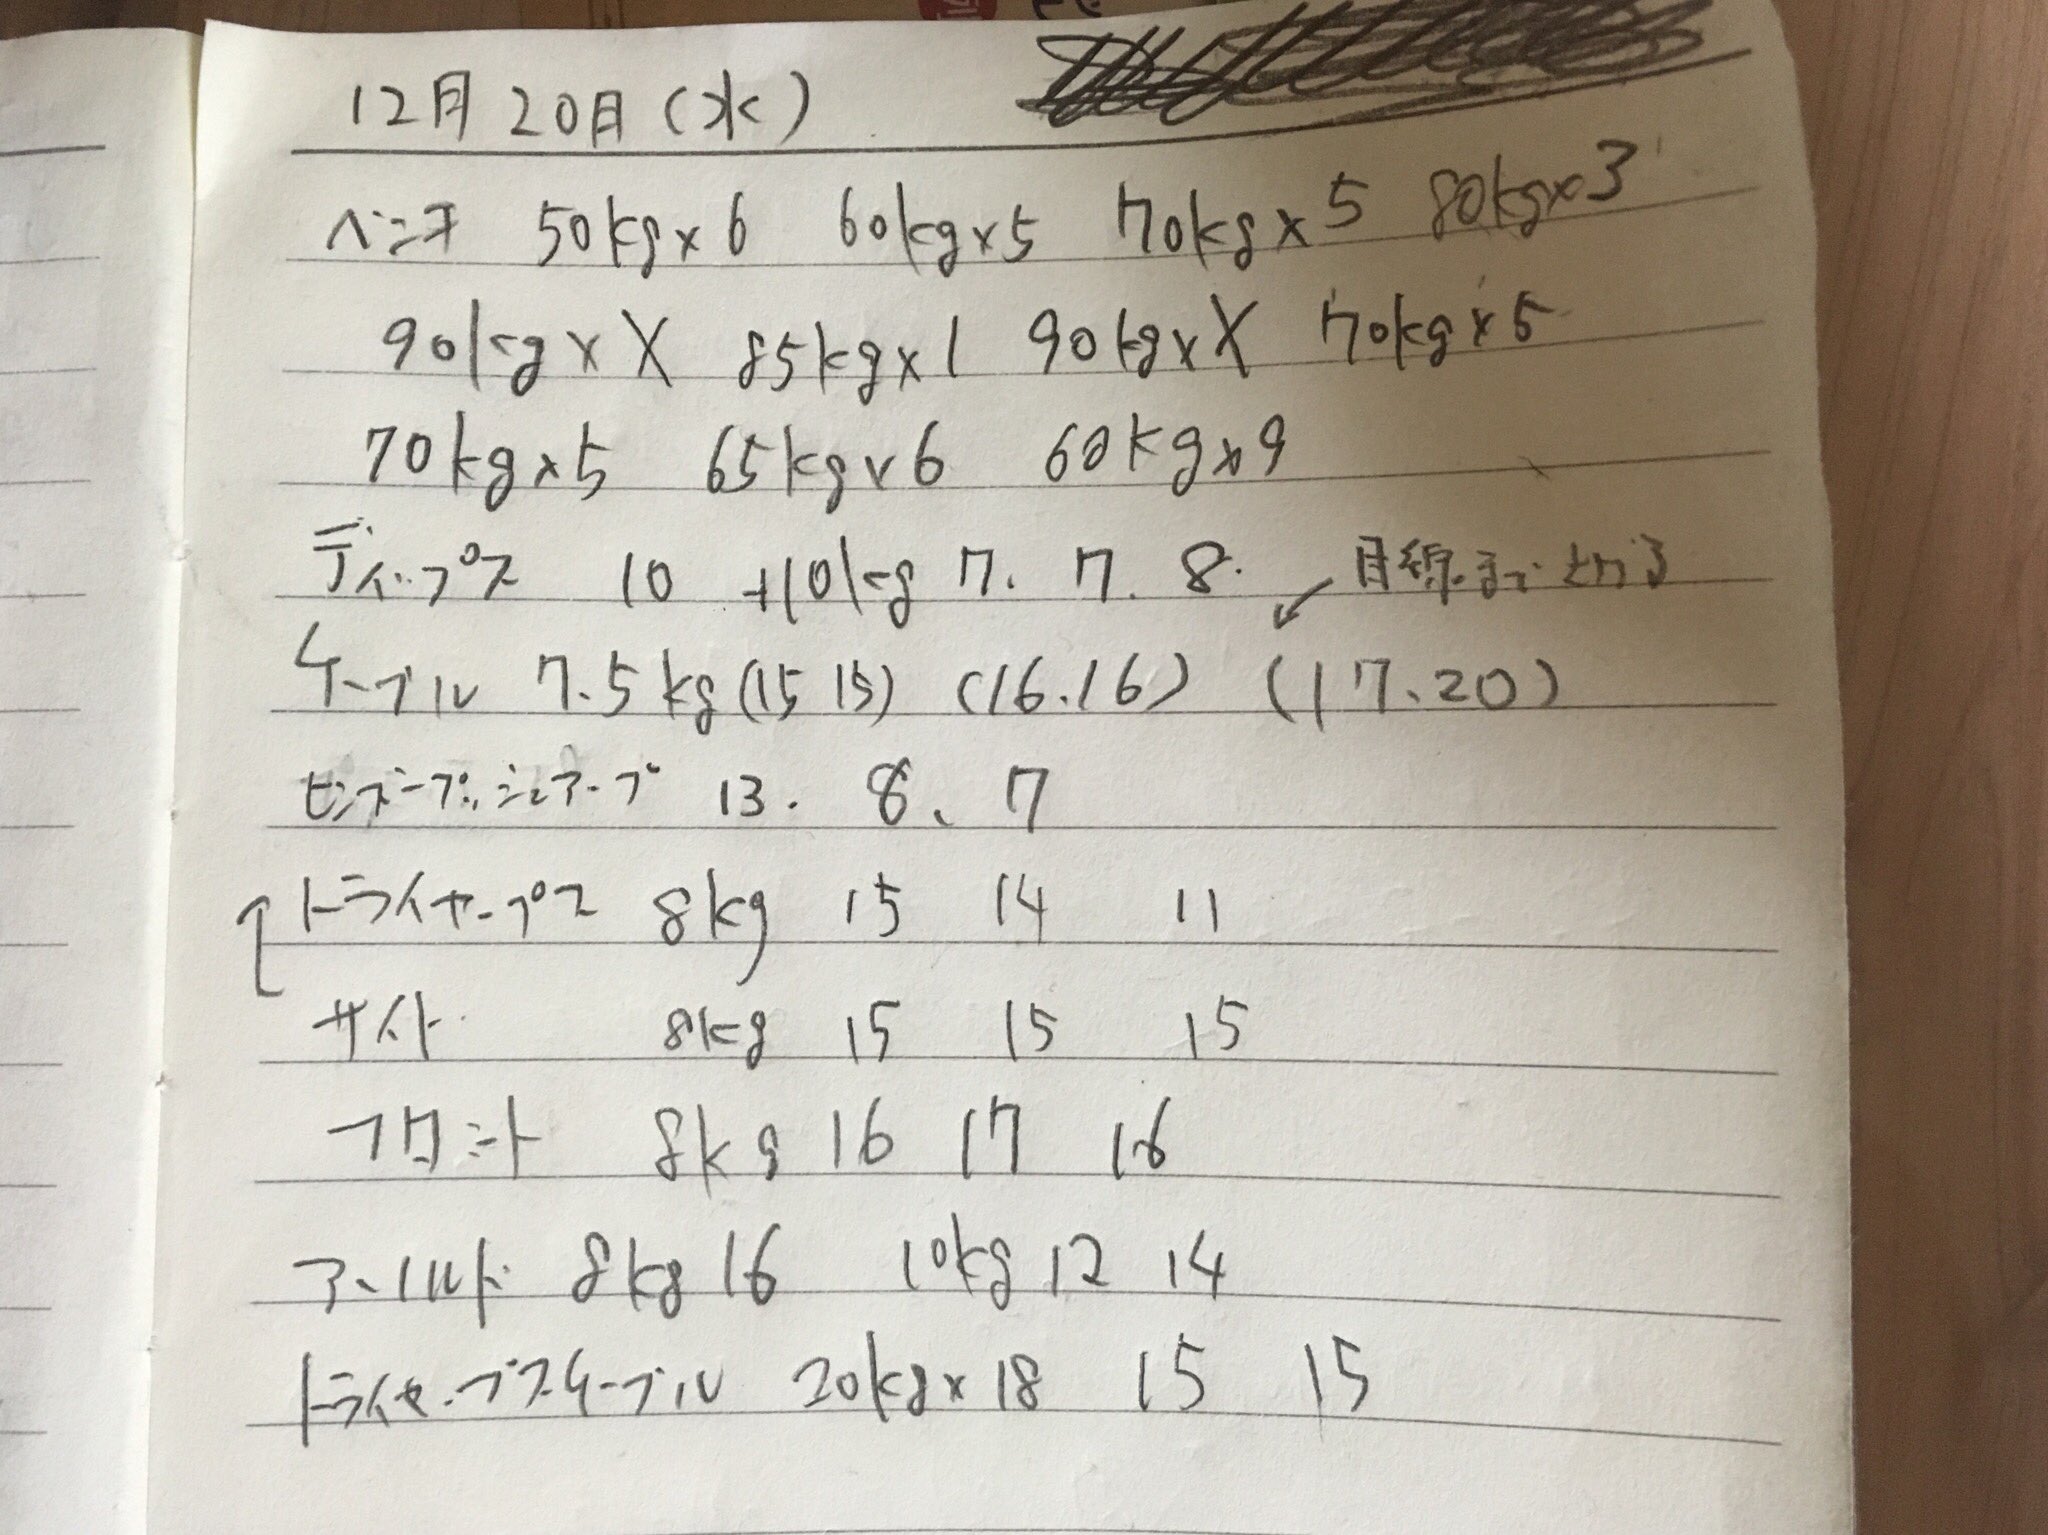 12月20日(水)
ベンチ 50kg×6 60kg×5 70kg×5 80kg×3
90kg×X 85kg×1 90kg×X 70kg×5
70kg×5 65kg×6 60kg×9
ディップス 10 +10kg 7. 7. 8.
目線まで上げる
ケーブル 7.5kg(15 15) (16.16) (17.20)
13. 8、7
トライセープス 8kg 15 14 11
サイド 8kg 15 15 15
フロント 8kg 16 17 16
アーノルド 8kg 16 10kg 12 14
トライセープスケーブル 20kg×18 15 15